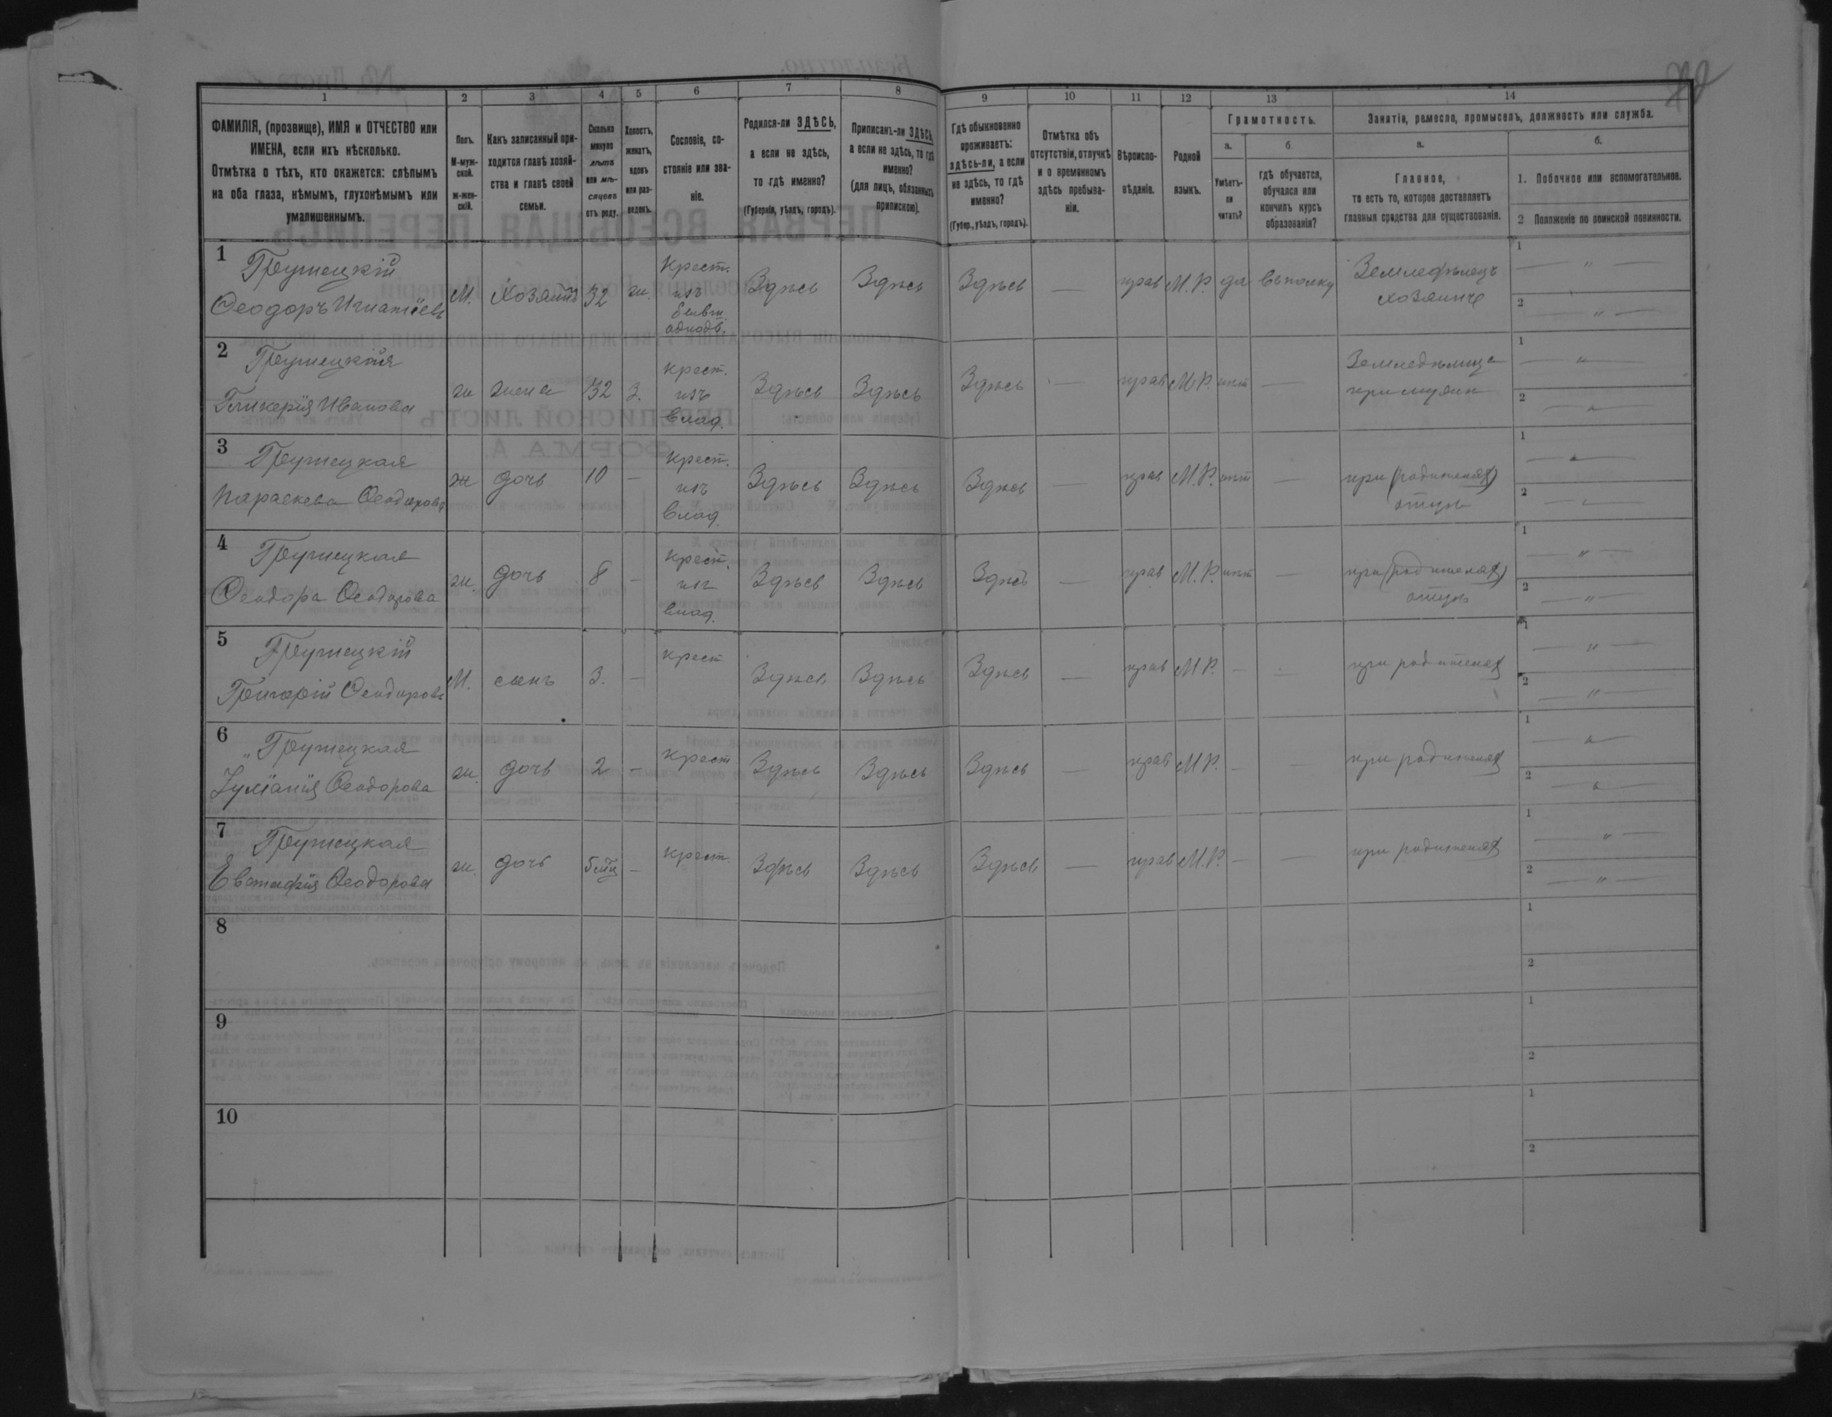 1 2 3 4 5 6 7 8 9 10 11 12 13 14
ФАМИЛІЯ, (прозвище), ИМЯ и ОТЧЕСТВО или
ИМЕНА, если ихъ нѣсколько.
Отмѣтка о тѣхъ, кто окажется: слѣпымъ
на оба глаза, нѣмымъ, глухонѣмымъ или
умалишеннымъ.
Полъ.
М-муж-
ской.
ж-жен-
скій.
Какъ записанный при-
ходится главѣ хозяй-
ства и главѣ своей
семьи.
Сколько
минуло
лѣтъ
или мѣ-
сяцевъ
отъ роду.
Холостъ,
женатъ,
вдовъ
или раз-
веденъ.
Сословіе, со-
стояніе или зва-
ніе.
Родился-ли ЗДѢСЬ,
а если не здѣсь,
то гдѣ именно?
(Губернія, уѣздъ, городъ).
Приписанъ-ли ЗДѢСЬ,
а если не здѣсь, то гдѣ
именно?
(для лицъ, обязанныхъ
припискою).
Гдѣ обыкновенно
проживаетъ:
здѣсь-ли, а если
не здѣсь, то гдѣ
именно?
(Губер., уѣздъ, городъ).
Отмѣтка объ
отсутствіи, отлучкѣ
и о временномъ
здѣсь пребыва-
ніи.
Вѣроиспо-
вѣданіе.
Родной
языкъ.
Грамотность.
а.
Умѣетъ-
ли
читать?
б
гдѣ обучается,
обучался или
кончилъ курсъ
образованія?
Занятіе, ремесло, промыселъ, должность или служба.
а.
Главное,
то есть то, которое доставляетъ
главныя средства для существованія.
б.
1. Побочное или вспомогательное.
2 Положеніе по воинской повинности.
1
Ѳеодоръ Игнатіевъ
М. Хозяинъ 32 ж.
Крест.
изъ
бывш.
однодв.
Здѣсь Здѣсь Здѣсь — прав М.Р. да
Земледѣлецъ
хозяинъ
1 — " —
2 — " —
2
Гликерія Иванова
ж жена 32 З.
крест.
изъ
влад.
Здѣсь Здѣсь Здѣсь — прав М.Р. нѣт —
Земледѣлица
при мужѣ
1 — " —
2 — " —
3
Параскева Ѳеодорова
ж дочь 10 —
крест.
изъ
влад.
Здѣсь Здѣсь Здѣсь — прав М.Р. нѣт —
при (родителях)
отцѣ
1 — " —
2 — " —
4
Ѳеодора Ѳеодорова
ж. дочь 8 —
крест.
изъ
влад.
Здѣсь Здѣсь Здѣсь — прав М.Р. нѣт —
при (родителях)
отцѣ
1 — " —
2 — " —
5
Григорій Ѳеодоровъ
М. сынъ 3. — крест Здѣсь Здѣсь Здѣсь — прав М.Р. — — при родителях
1 — " —
2 — " —
6
Іуліанія Ѳеодорова
ж. дочь 2 — крест Здѣсь Здѣсь Здѣсь — прав М.Р. — — при родителях
1 — " —
2 — " —
7
Ѳеодорова
ж. дочь — крест Здѣсь Здѣсь Здѣсь — прав М.Р. — — при родителях
1 — " —
2 — " —
8
1
2
9
1
2
10
1
2